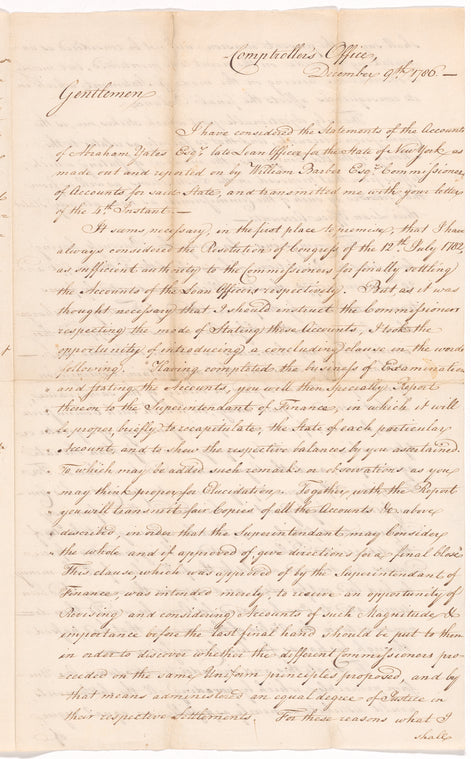 Comptrollers Office,
December 9th. 1786. —
Gentlemen
I have considered the Statements of the Accounts
of Abraham Yates Esqr. late Loan Officer for the State of New York as
made out and reported on by William Barber Esqr. Commissioner
of Accounts for said State, and transmitted me with your letter
of the 4th. Instant. —
It seems necessary, in the first place to premise, that I have
always considered the Resolution of Congress of the 12th. July 1782,
as sufficient authority to the Commissioners for finally settling
the Accounts of the Loan Officers respectively. But, as it was
thought necessary that I should instruct the Commissioner
respecting the mode of Stating these Accounts, I took the
opportunity of introducing a concluding clause in the words
following. "Having completed the business of Examination
" and stating the Accounts, you will then Specially Report
" thereon to the Superintendant of Finance, in which it will
" be proper, briefly to recapitulate, the State of each particular
" Account, and to shew the respective balances by you ascertained.
" To which may be added such remarks or observations as you
" may think proper for Elucidation. Together with the Report
" you will transmit fair Copies of all the Accounts &c. above
" described, in order that the Superintendant may Consider
" the whole and if approved of, give directions for a final Close."
This clause, which was approved of by the Superintendant of
Finance, was intended merely, to receive an opportunity of
Revising and considering Accounts of such Magnitude &
importance before the last final hand should be put to them
in order to discover whether the different Commissioners pro-
ceeded on the same Uniform principles proposed, and by
that means administered an equal degree of Justice in
their respective Settlements. For these reasons what I
shall